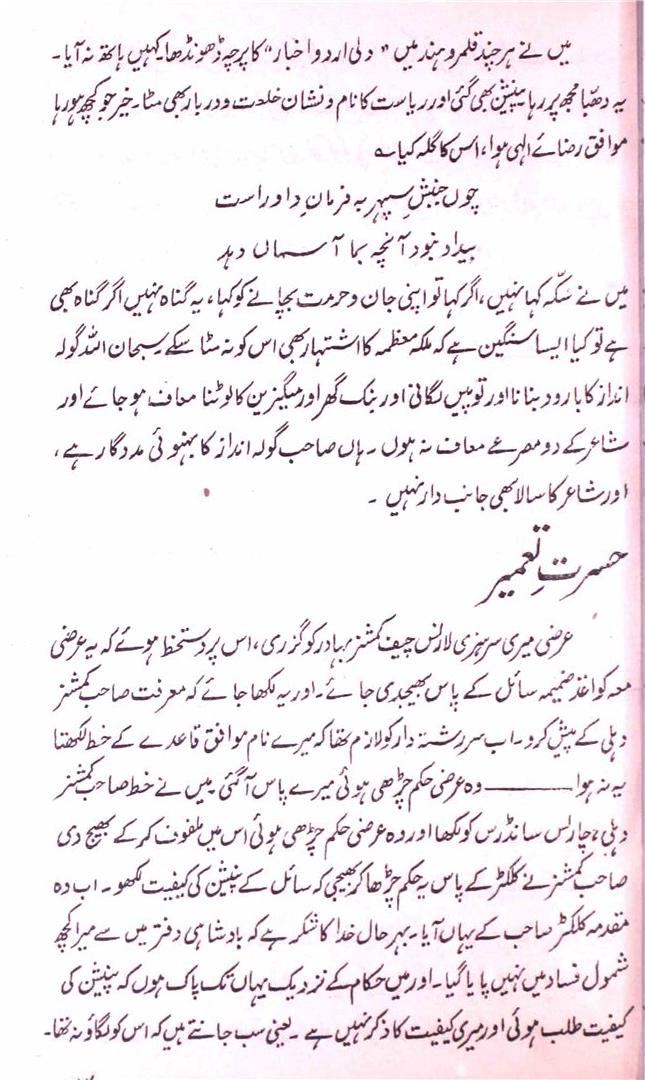 میں نے ہر چند قلمرو ہند میں "دلی اردو اخبار" کا پرچہ ڈھونڈھا۔ کہیں ہاتھ نہ آیا۔
یہ دھبّا مجھ پر رہا پنشن بھی گئی اور ریاست کا نام و نشان خلعت و دربار بھی مٹا۔ خیر جو کچھ ہو رہا
موافق رضائے الٰہی ہوا، اس کا گلہ کیا ؎
چوں جنبشِ سپہر بہ فرمانِ داور است
بیداد نبود آنچہ بما آسماں دہد
میں نے سکّہ کہا نہیں، اگر کہا تو اپنی جان و حرمت بچانے کو کہا، یہ گناہ نہیں اگر گناہ بھی
ہے تو کیا ایسا سنگین ہے کہ ملکہ معظمہ کا اشتہار بھی اس کو نہ مٹا سکے۔ سبحان اللہ گولہ
انداز کا بارود بنانا اور توپیں لگانی اور بنک گھر اور میگزین کا لوٹنا معاف ہو جائے اور
شاعر کے دو مصرعے معاف نہ ہوں۔ ہاں صاحب گولہ انداز کا بہنوئی مددگار ہے،
اور شاعر کا سالا بھی جانب دار نہیں ۔
حسرتِ تعمیر
عرضی میری سر ہنری لارنس چیف کمشنر بہادر کو گزری، اس پر دستخط ہوئے کہ یہ عرضی
معہ کواغذ ضمیمہ سائل کے پاس بھیجدی جائے۔ اور یہ لکھا جائے کہ معرفت صاحب کمشنر
دہلی کے پیش کرو۔ اب سررشتہ دار کو لازم تھا کہ میرے نام موافق قاعدے کے خط لکھتا
یہ نہ ہوا ——— وہ عرضی حکم چڑھی ہوئی میرے پاس آ گئی میں نے خط صاحب کمشنر
دہلی، چارلس سانڈرس کو لکھا اور وہ عرضی حکم چڑھی ہوئی اس میں ملفوف کر کے بھیج دی
صاحب کمشنر نے کلکٹر کے پاس یہ حکم چڑھا کر بھیجی کہ سائل کے پنشن کی کیفیت لکھو۔ اب وہ
مقدمہ کلکٹر صاحب کے یہاں آیا۔ بہر حال خدا کا شکر ہے کہ بادشاہی دفتر میں سے میرا کچھ
شمول فساد میں نہیں پایا گیا۔ اور میں حکام کے نزدیک یہاں تک پاک ہوں کہ پنشن کی
کیفیت طلب ہوئی اور میری کیفیت کا ذکر نہیں ہے۔ یعنی سب جانتے ہیں کہ اس کو لگاؤ نہ تھا۔